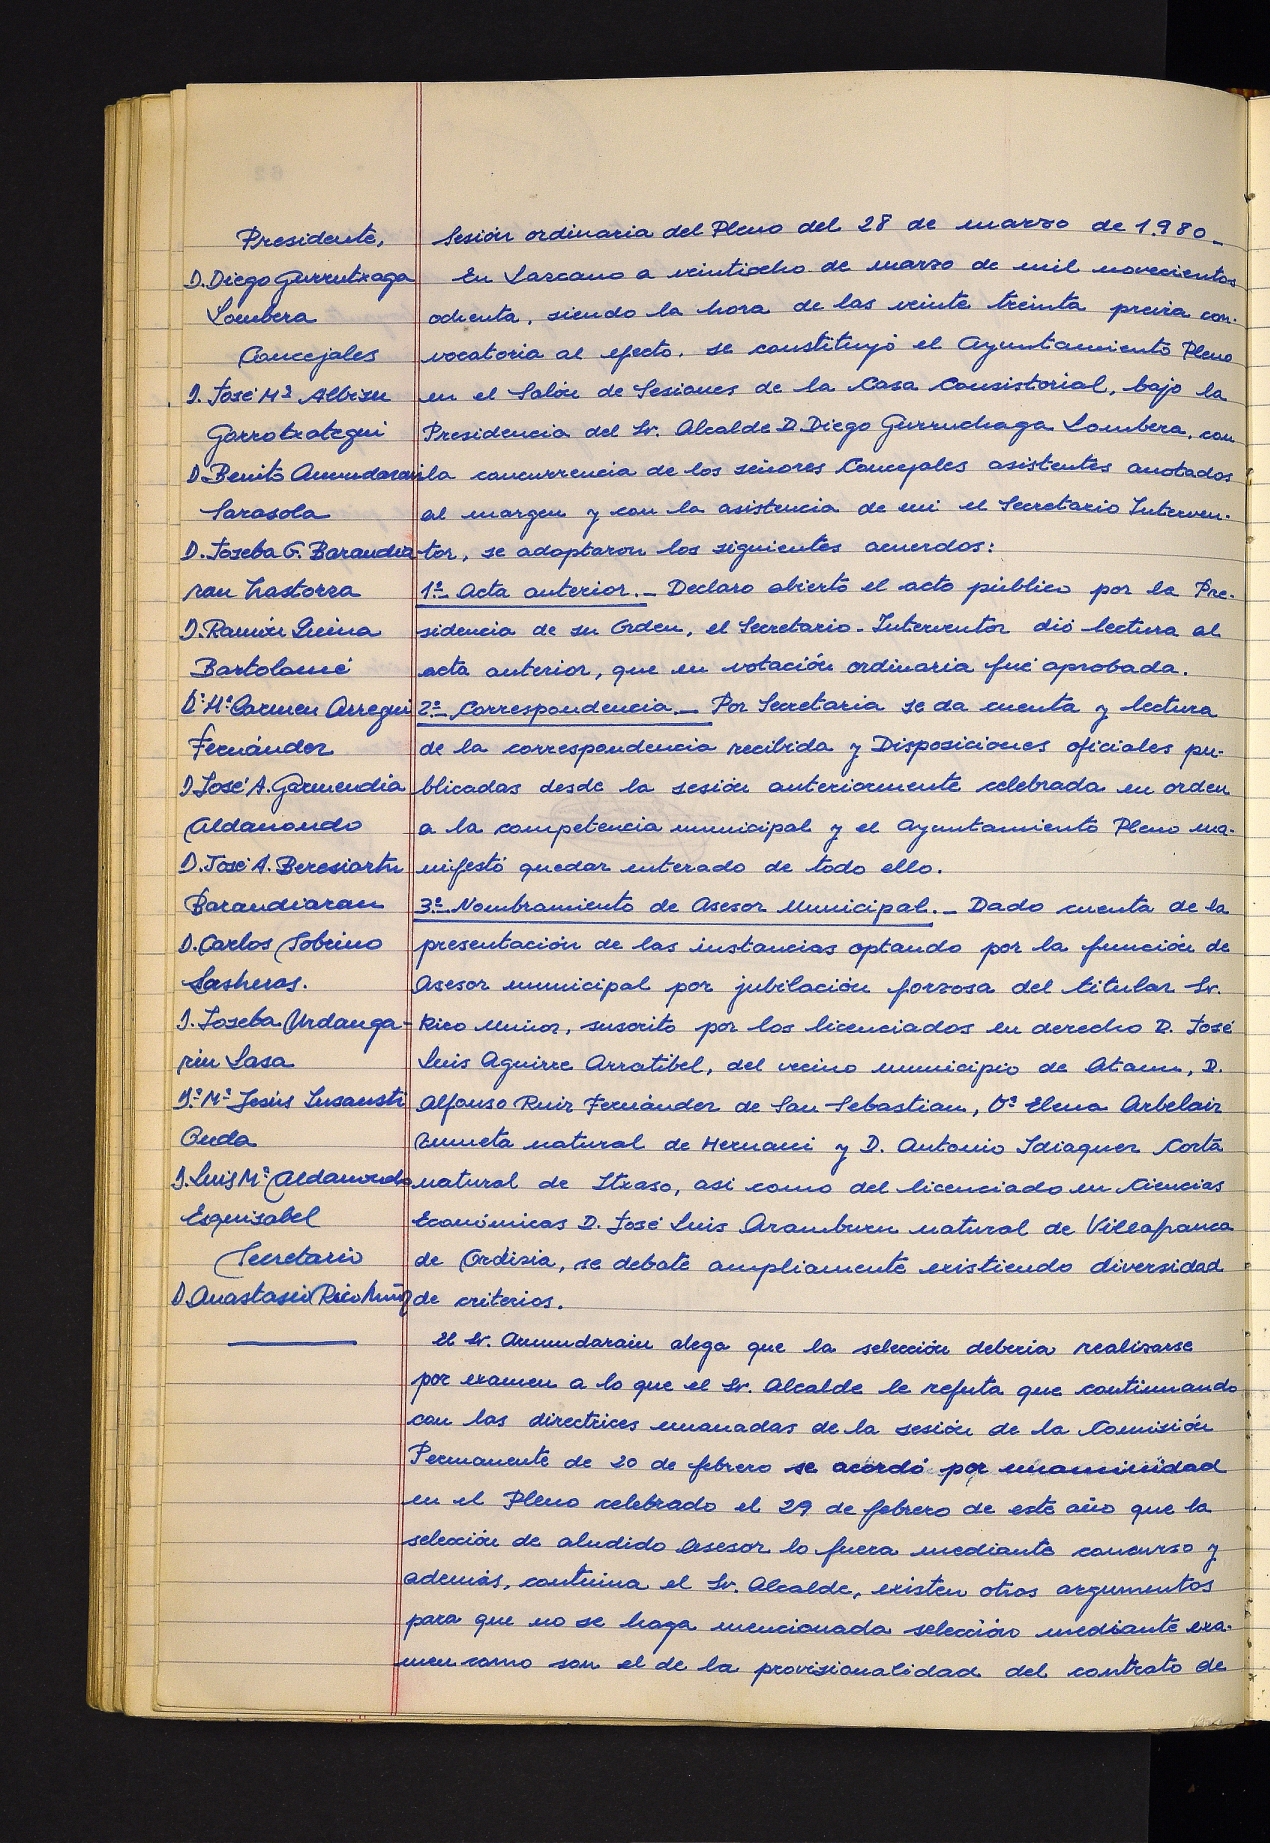 Presidente,
D. Diego Gurrutxaga
Lombera
Concejales
D. José Mª Albisu
Garrotxategui
D. Benito Amundarain
Sarasola
D. Joseba G. Barandia
ran Lastorra
D. Ramón Guina
Bartolomé
Dª Mª Carmen Arregui
Fernández
D. José A. Garmendia
Aldanondo
D. José A. Beresiartu
Barandiaran
D. Carlos Sobrino
Lasheras.
D. Joseba Urdanga-
rin Lasa
Dª Mª Jesús Insausti
Onda
D. Luis Mª Aldanondo
Esquisabel
Secretario
D. Anastasio Rico Muñoz
Sesión ordinaria del Pleno del 28 de marzo de 1.980_
En Lazcano a veintiocho de marzo de mil novecientos
ochenta, siendo la hora de las veinte treinta previa con-
vocatoria al efecto, se constituyó el Ayuntamiento Pleno
en el Salón de Sesiones de la Casa Consistorial, bajo la
Presidencia del Sr. Alcalde D. Diego Gurruchaga Lombera, con
la concurrencia de los señores Concejales asistentes anotados
al margen y con la asistencia de mi el Secretario Interven-
tor, se adoptaron los siguientes acuerdos:
1º_ Acta anterior._ Declaro abierto el acto público por la Pre-
sidencia de su Orden, el Secretario-Interventor dió lectura al
acta anterior, que en votación ordinaria fué aprobada.
2º_ Correspondencia._ Por Secretaria se da cuenta y lectura
de la correspondencia recibida y Disposiciones oficiales pu-
blicadas desde la sesión anteriormente celebrada en orden
a la competencia municipal y el Ayuntamiento Pleno ma-
nifestó quedar enterado de todo ello.
3º_ Nombramiento de Asesor Municipal._ Dado cuenta de la
presentación de las instancias optando por la función de
Asesor municipal por jubilación forzosa del titular Sr.
Rico Muñoz, suscrito por los licenciados en derecho D. José
Luis Aguirre Arratibel, del vecino municipio de Ataun, D.
Alfonso Ruiz Fernández de San Sebastian, Dª Elena Arbelaiz
Zumeta natural de Hernani y D. Antonio Idiaquez Corta
natural de Itxaso, asi como del licenciado en Ciencias
Económicas D. José Luis Aramburu natural de Villafranca
de Ordizia, se debate ampliamente existiendo diversidad
de criterios.
El Sr. Amundarain alega que la selección deberia realizarse
por examen a lo que el Sr. Alcalde le refuta que continuando
con las directrices emanadas de la sesión de la Comisión
Permanente de 20 de febrero se acordó por unanimidad
en el Pleno celebrado el 29 de febrero de este año que la
selección de aludido Asesor lo fuera mediante concurso y
además, continua el Sr. Alcalde, existen otros argumentos
para que no se haga mencionada selección mediante exa-
men como son el de la provisionalidad del contrato de